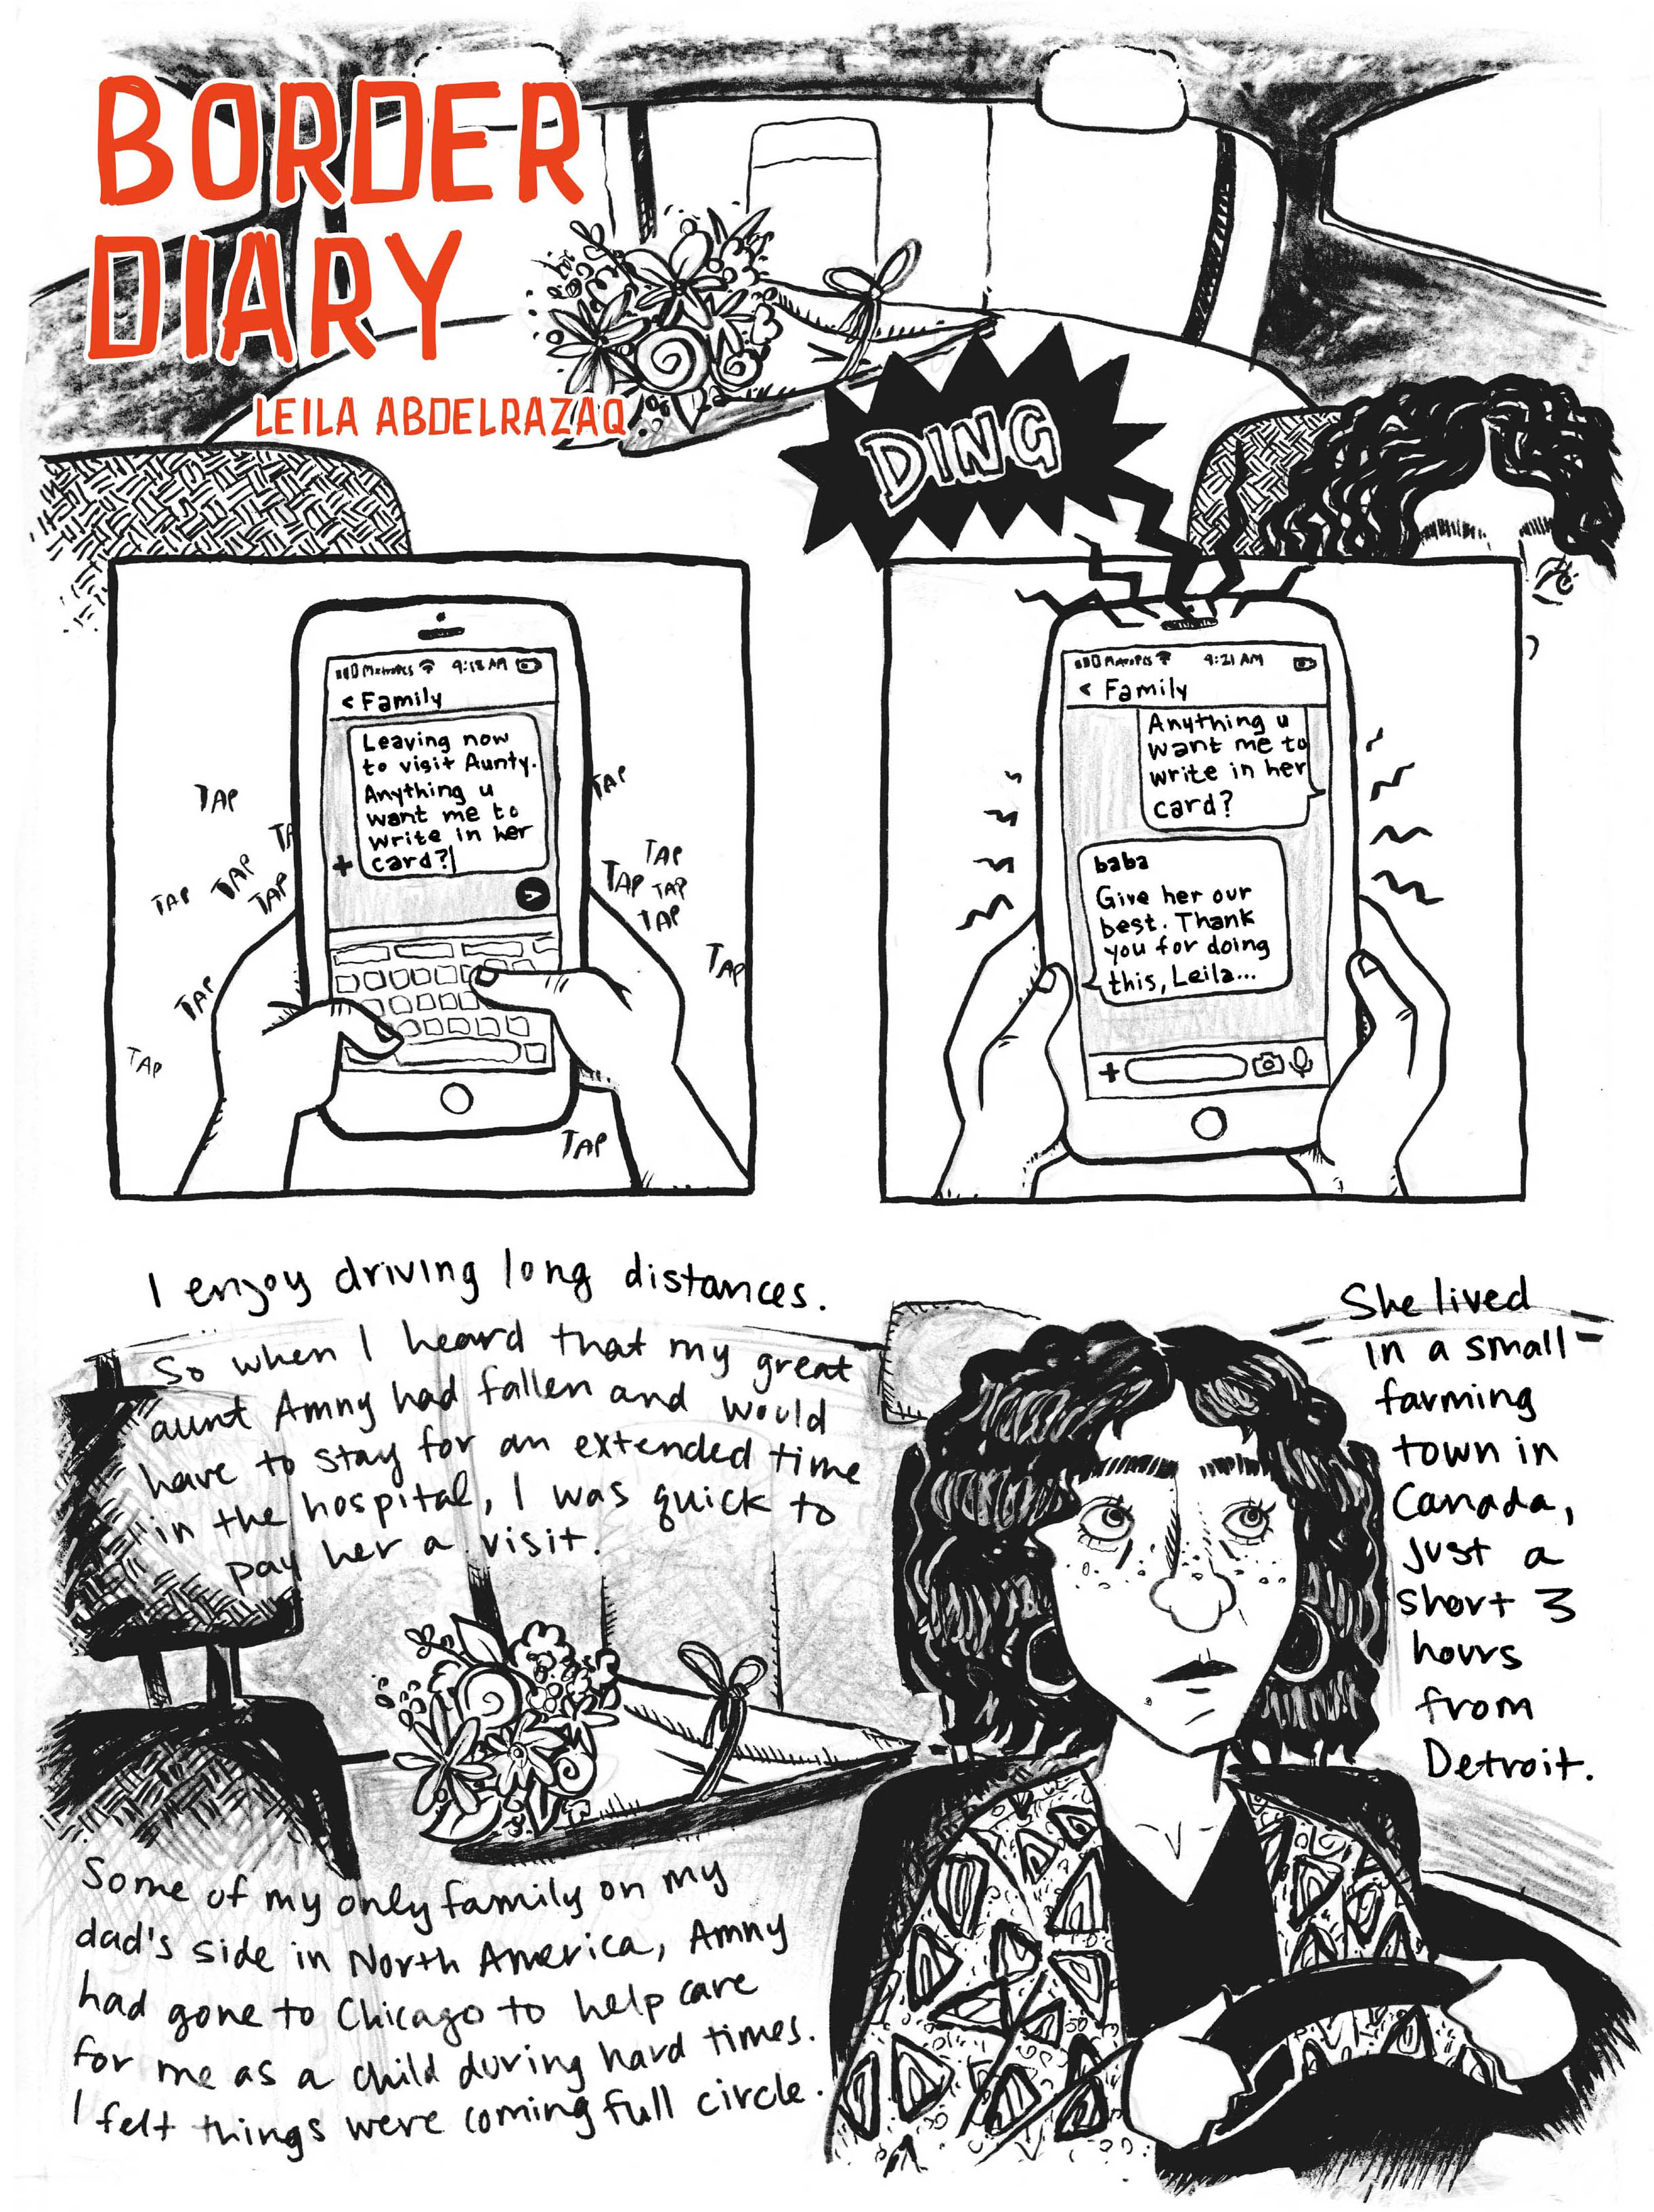 BORDER
DIARY
LEILA ABDELRAZAQ
DING
MetroPCS 9:18 AM
< Family
Leaving now
to visit Aunty.
Anything u
want me to
write in her
card?
+
>
TAP
TA
TAP
TAP
TAP
TAP
TAP
TAP
TAP
TAP
TAP
TAP
TAP
TAP
MetroPCS 9:21 AM
< Family
Anything u
want me to
write in her
card?
baba
Give her our
best. Thank
you for doing
this, Leila...
+
I enjoy driving long distances.
So when I heard that my great
aunt Amny had fallen and would
have to stay for an extended time
in the hospital, I was quick to
pay her a visit.
She lived
in a small
farming
town in
Canada,
just a
short 3
hours
from
Detroit.
Some of my only family on my
dad's side in North America, Amny
had gone to Chicago to help care
for me as a child during hard times.
I felt things were coming full circle.